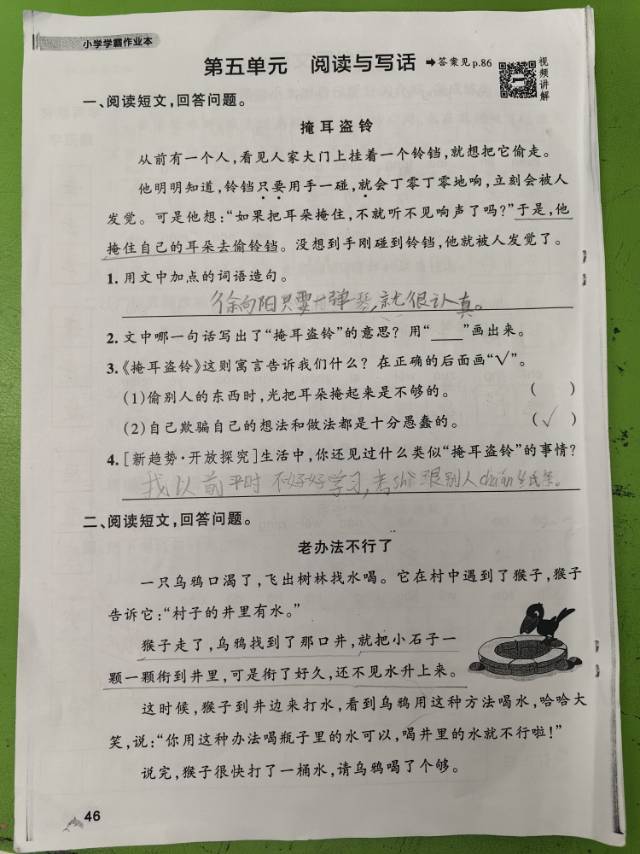 小学学霸作业本
第五单元 阅读与写话 ➡答案见p.86
视频讲解
一、阅读短文,回答问题。
掩耳盗铃
从前有一个人,看见人家大门上挂着一个铃铛,就想把它偷走。
他明明知道,铃铛只要用手一碰,就会丁零丁零地响,立刻会被人
发觉。可是他想:“如果把耳朵掩住,不就听不见响声了吗?”于是,他
掩住自己的耳朵去偷铃铛。没想到手刚碰到铃铛,他就被人发觉了。
1.用文中加点的词语造句。
徐向阳只要 弹琴,就很认真。
2.文中哪一句话写出了“掩耳盗铃”的意思?用“____”画出来。
3.《掩耳盗铃》这则寓言告诉我们什么?在正确的后面画“√”。
(1)偷别人的东西时,光把耳朵掩起来是不够的。 ( )
(2)自己欺骗自己的想法和做法都是十分愚蠢的。 (√)
4.[新趋势·开放探究]生活中,你还见过什么类似“掩耳盗铃”的事情?
我以前平时不好好学习,考shì 跟别人
二、阅读短文,回答问题。
老办法不行了
一只乌鸦口渴了,飞出树林找水喝。它在村中遇到了猴子,猴子
告诉它:“村子的井里有水。”
猴子走了,乌鸦找到了那口井,就把小石子一
颗一颗衔到井里,可是衔了好久,还不见水升上来。
这时候,猴子到井边来打水,看到乌鸦用这种方法喝水,哈哈大
笑,说:“你用这种办法喝瓶子里的水可以,喝井里的水就不行啦!”
说完,猴子很快打了一桶水,请乌鸦喝了个够。
46